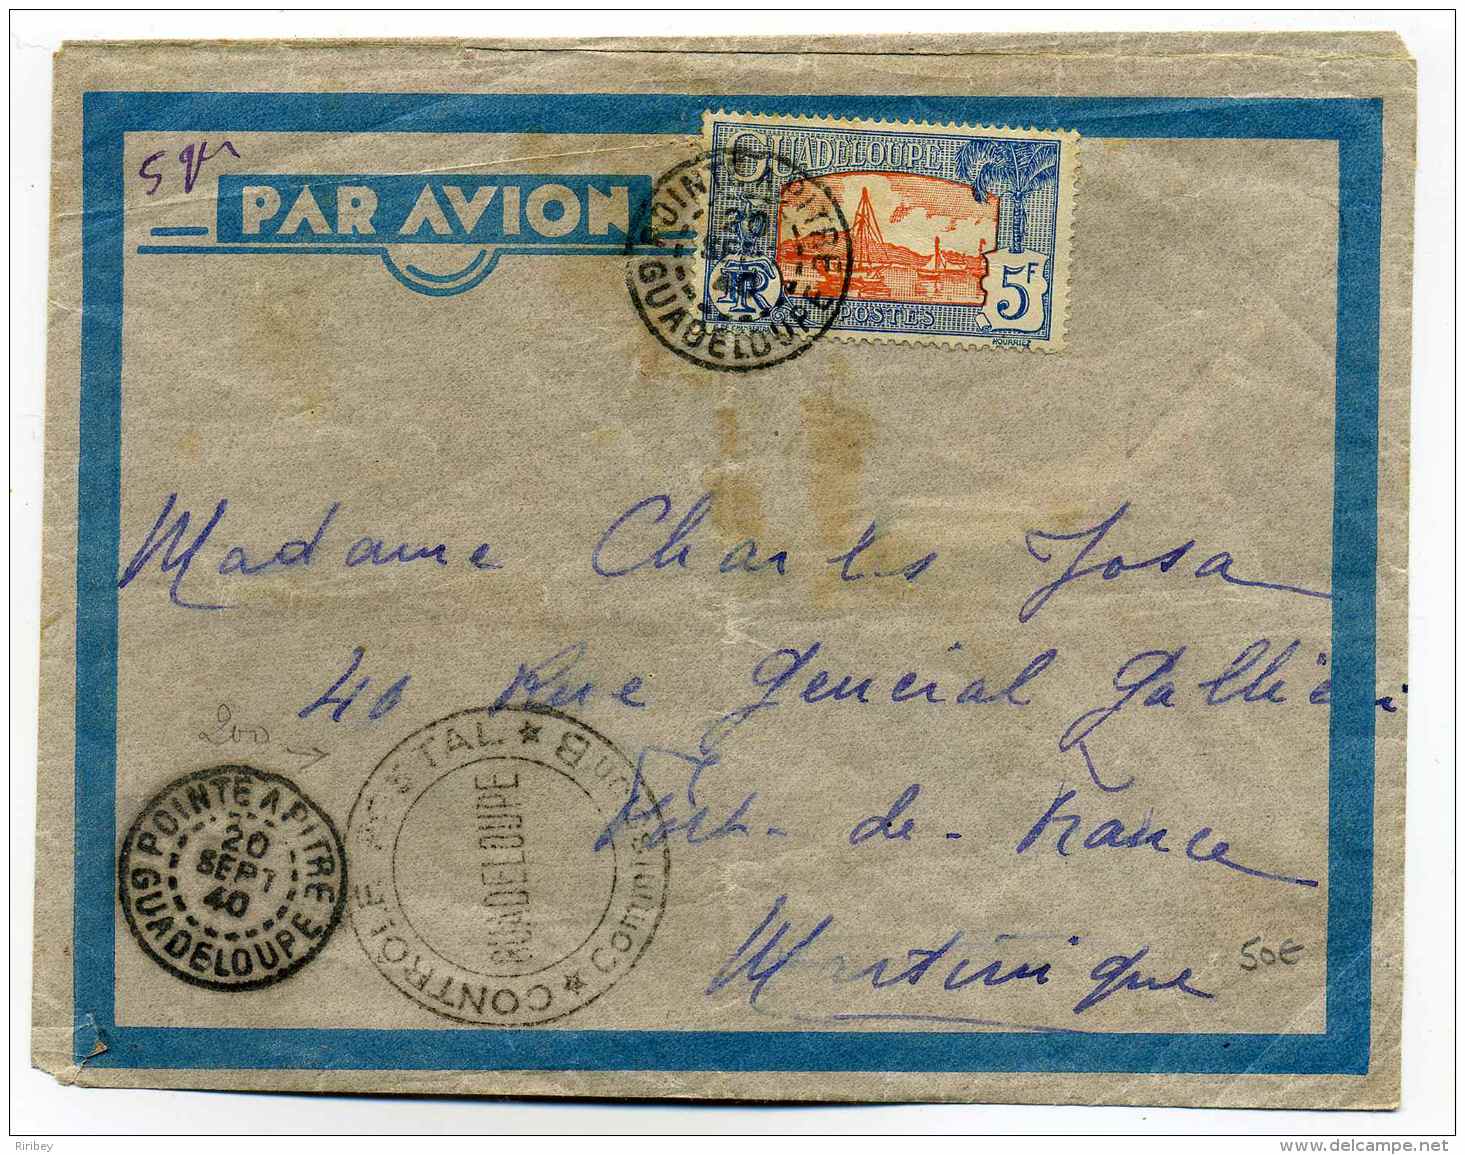 5 gr
PAR AVION
GUADELOUPE
RF
POSTES
5F
HOURRIEZ
POINTE A PITRE
20
SEPT
40
GUADELOUPE
Madame Charles Josa
40 Rue General Gallieni
Fort-de-France
Martinique
200 →
50€
POINTE A PITRE
20
SEPT
40
GUADELOUPE
CONTROLE POSTAL ★ Commission B ★
GUADELOUPE
Riribey
www.delcampe.net